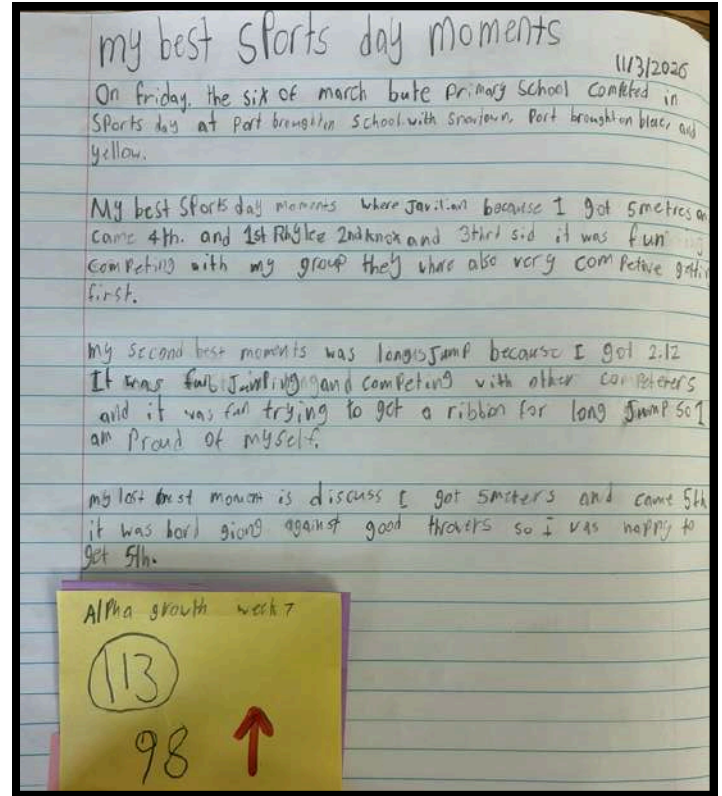 my best Sports day moments
11/3/2026
On friday, the six of march bute Primary School Competed in
Sports day at Port broughton School with Snowtown, Port broughton blue, and
yellow.
My best Sports day moments where Javilian because I got 5metres an
came 4th. and 1st Rhylee 2nd knox and 3thrd sid it was fun
Competing with my group they where also very competive gettin
first.
my second best moments was long Jump because I got 2.12
It was fun Jumping and competing with other competerers
and it was fun trying to get a ribbon for long Jump so I
am Proud of myself.
my last best moment is discuss I got 5meters and came 5th
it was hard giong against good throwers so I was happy to
get 5th.
Alpha growth week 7
113
98